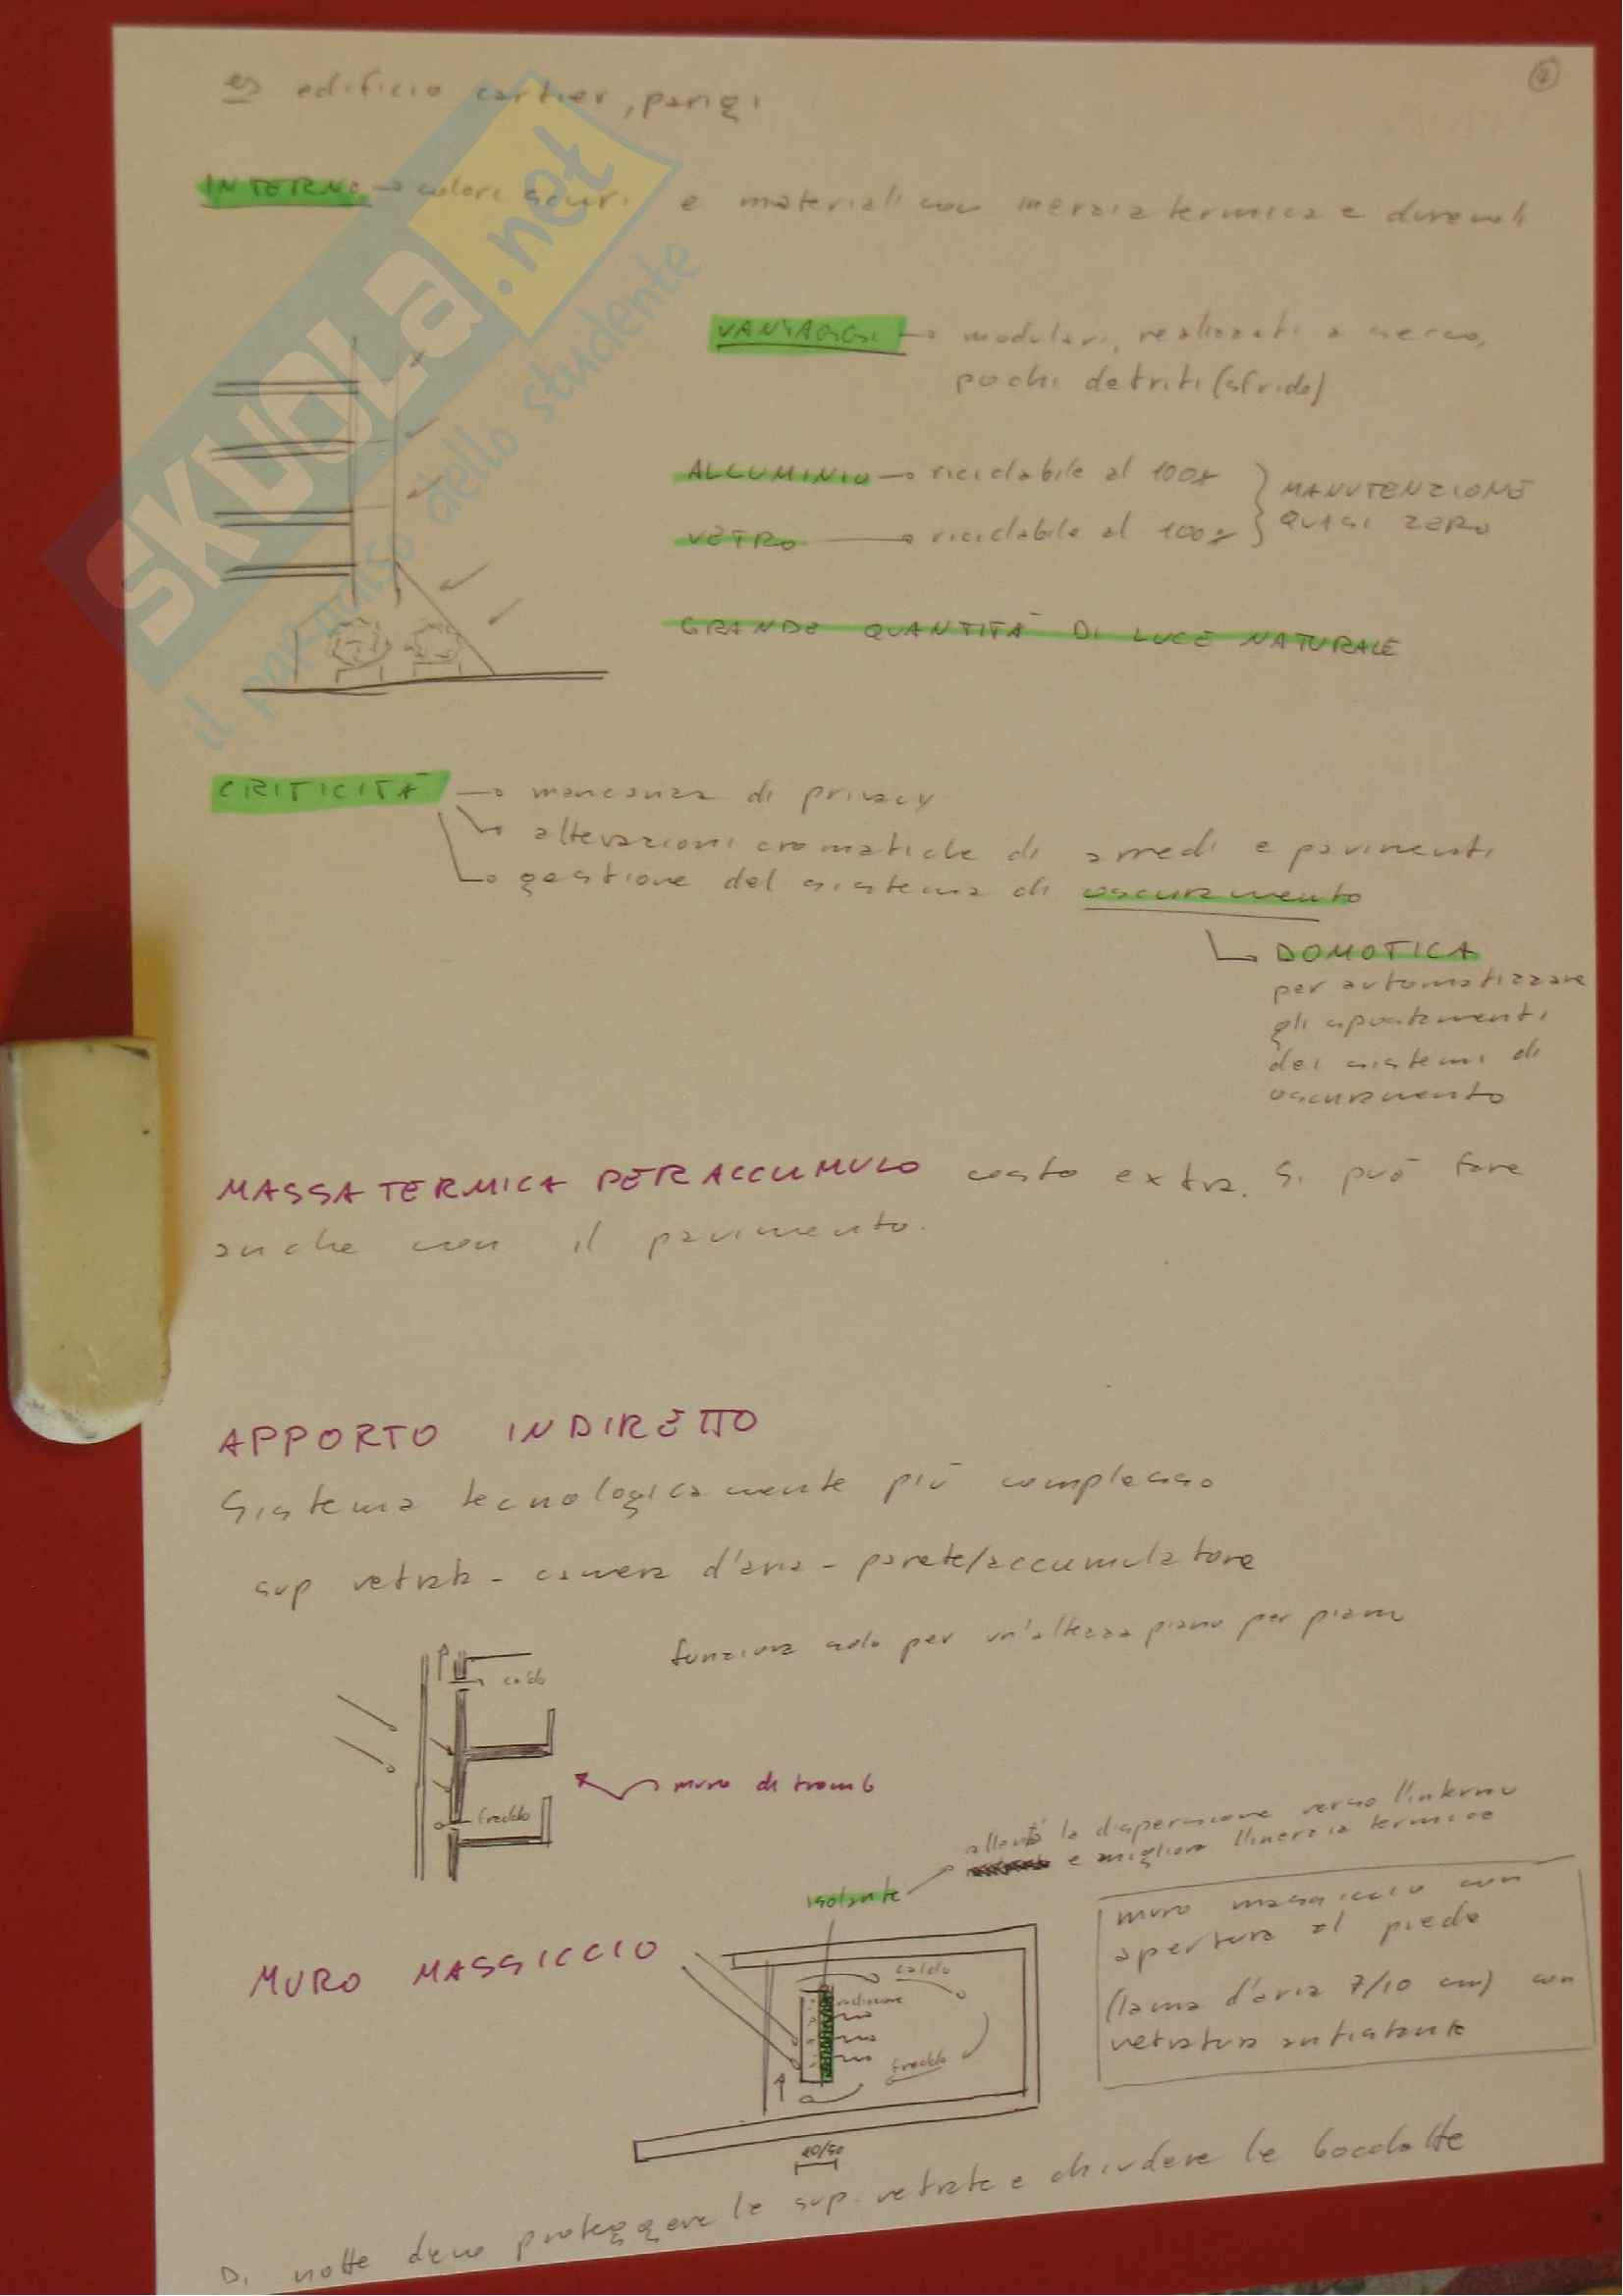 es edificio cartier, parigi
INTERNO → colori scuri e materiali con inerzia termica e durevoli
VANTAGGI → modulari, realizzati a secco,
pochi detriti (sfrido)
ALLUMINIO → riciclabile al 100%
VETRO → riciclabile al 100%
MANUTENZIONE
QUASI ZERO
GRANDE QUANTITÀ DI LUCE NATURALE
CRITICITÀ → mancanza di privacy
alterazioni cromatiche di arredi e pavimenti
gestione del sistema di oscuramento
DOMOTICA
per automatizzare
gli spostamenti
dei sistemi di
oscuramento
MASSA TERMICA PER ACCUMULO costo extra. Si può fare
anche con il pavimento.
APPORTO INDIRETTO
Sistema tecnologicamente più complesso
sup vetrata - camera d'aria - parete/accumulatore
funziona solo per un'altezza piano per piano
caldo
muro di tromb
freddo
la dispersione verso l'interno
e migliora l'inerzia termica
isolante
MURO MASSICCIO
caldo
radiazione
freddo
muro massiccio con
apertura al piede
(lama d'aria 7/10 cm) con
vetratura antistante
Di notte devo proteggere le sup. vetrate e chiudere le bocchette
SKUOLA.net
il paradiso dello studente